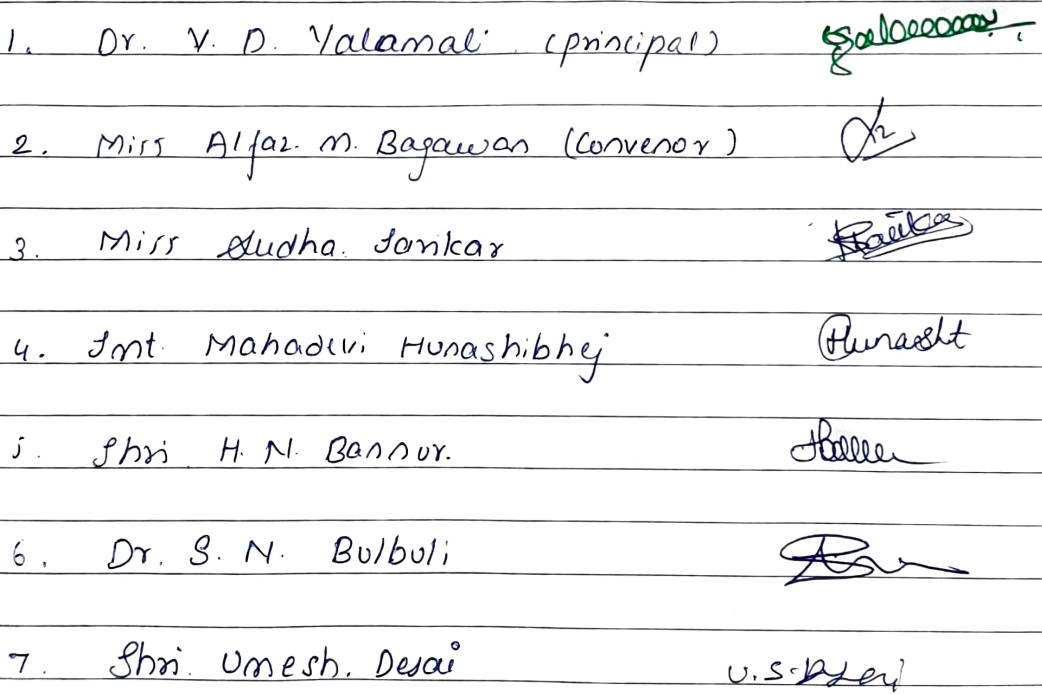 1. Dr. V. D. Yalamali (principal)
2. Miss Alfaz. M. Bagawan (Convenor)
3. Miss Sudha. Sarikar
4. Smt. Mahadevi Hunashibhej
5. Shri H. N. Bannur.
6. Dr. S. N. Bulbuli
7. Shri. Umesh. Desai U.S.Desai